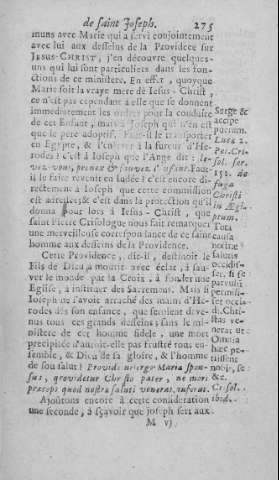 de saint Joseph. 275
muns avec Marie qui a servi conjointement
avec lui aux desseins de la Providence sur
JESUS-CHRIST, j'en découvre quelques-
uns qui lui sont particuliers dans les fonc-
tions de ce ministere. En effet, quoyque
Marie soit la vraye mere de Jesus-Christ,
ce n'est pas cependant à elle que se donnent
immediatement les ordres pour la conduite
de cet Enfant, mais à Joseph qui n'en est
que le pere adoptif. Faut-il le transporter
en Egypte, & l'enlever à la fureur d'He-
rodes? c'est à Joseph que l'Ange dit: le-
vez-vous, prenez & sauvez l'enfant. Faut-
il le faire revenir en Judée? c'est encore di-
rectement à Joseph que cette commission
est adressée; & c'est dans la protection qu'il
donna pour lors à Jesus-Christ, que
saint Pierre Crisologue nous fait remarquer
une merveilleuse correspondance de ce saint
homme aux desseins de la Providence.
Cette Providence, dit-il, destinoit le
Fils de Dieu à mourir avec éclat, à sau-
ver le monde par la Croix, à fonder une
Eglise, à instituer des Sacremens. Mais si
Joseph ne l'avoit arraché des mains d'He-
rodes dès son enfance, que seroient deve-
nus tous ces grands desseins? sans le mi-
nistere de cet homme fidele, une mort
précipitée n'auroit-elle pas frustré tout en-
semble, & Dieu de sa gloire, & l'homme
de son salut? Providit utique Maria spon-
sus, providetur Christo pater, ne mors
præceps quod nostra saluti venerat, auferat.
Ajoûtons encore à cette consideration
une seconde, à sçavoir que Joseph sert aux
M vj
Surge &
accipe
puerum.
Luca 2.
Pet. Cri-
sol. ser.
151. de
fuga
Christi
in Ægi-
ptum.
Tota
causa
nostræ
salutis
occisif-
set, si se
parvulū
permisis-
set occi-
di. Chri-
stus ve-
nerat ut
Omnia
hæc pe-
tiissent
nisi
&c.
Crisol.
ibid.